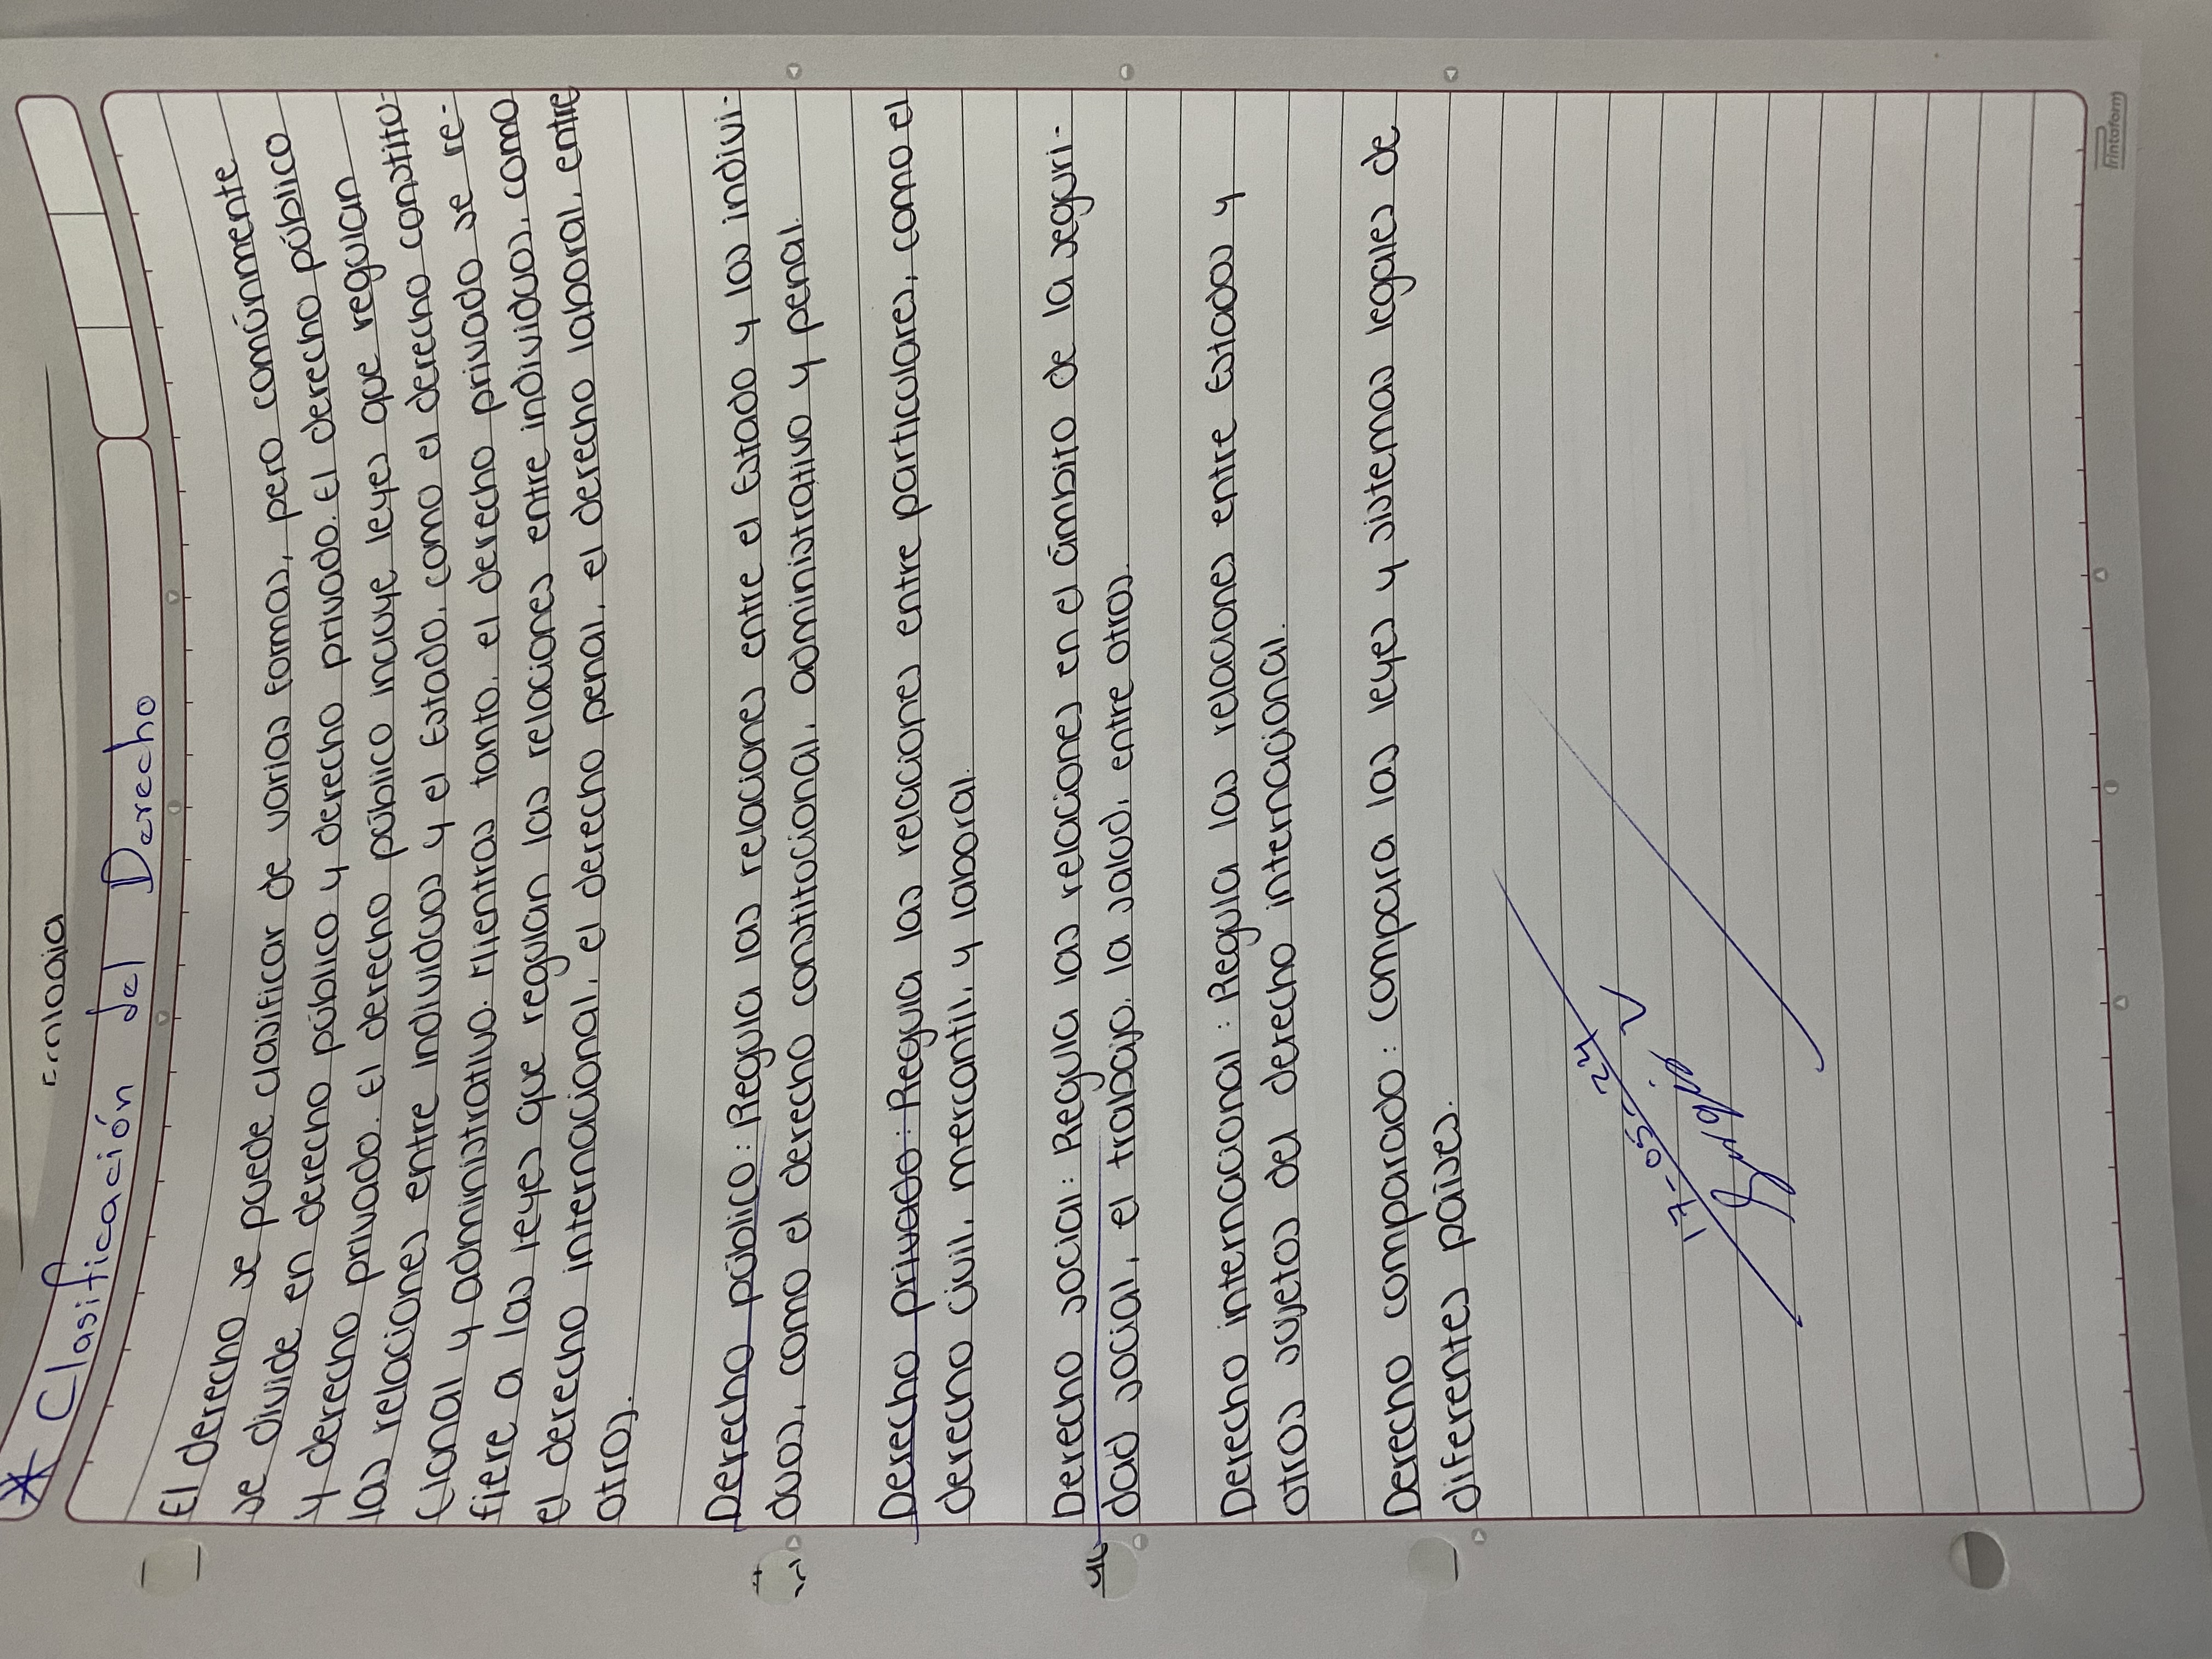 * Clasificación del Derecho
El derecho se puede clasificar de varias formas, pero comúnmente
se divide en derecho público y derecho privado. El derecho público
y derecho privado. El derecho público incluye leyes que regulan
las relaciones entre individuos y el Estado, como el derecho constitu-
cional y administrativo. Mientras tanto, el derecho privado se re-
fiere a las leyes que regulan las relaciones entre individuos, como
el derecho internacional, el derecho penal, el derecho laboral, entre
otros.
Derecho público: Regula las relaciones entre el Estado y los indivi-
duos, como el derecho constitucional, administrativo y penal.
Derecho privado: Regula las relaciones entre particulares, como el
derecho civil, mercantil, y laboral.
Derecho social: Regula las relaciones en el ámbito de la seguri-
dad social, el trabajo, la salud, entre otros.
Derecho internacional: Regula las relaciones entre Estados y
otros sujetos del derecho internacional.
Derecho comparado: Compara las leyes y sistemas legales de
diferentes países.
17-05-24
Printaform